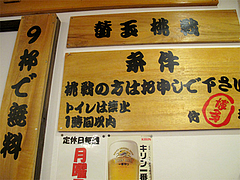 9杯で無料
替玉挑戦
条件
挑戦の方はお申しで下さい
トイレは禁止
1時間以内
定休日毎週
月曜
キリン一番